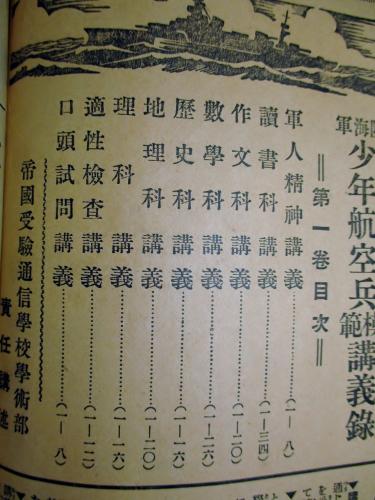 陸海軍
少年航空兵模範講義錄
＝第一卷目次＝
軍人精神講義………(一―八)
讀書科講義………(一―三四)
作文科講義………(一―二〇)
數學科講義………(一―二六)
歷史科講義………(一―一六)
地理科講義………(一―二〇)
理科講義………(一―一六)
適性檢查講義………(一―一二)
口頭試問講義………(一―八)
帝國受驗通信學校學術部
責任講述